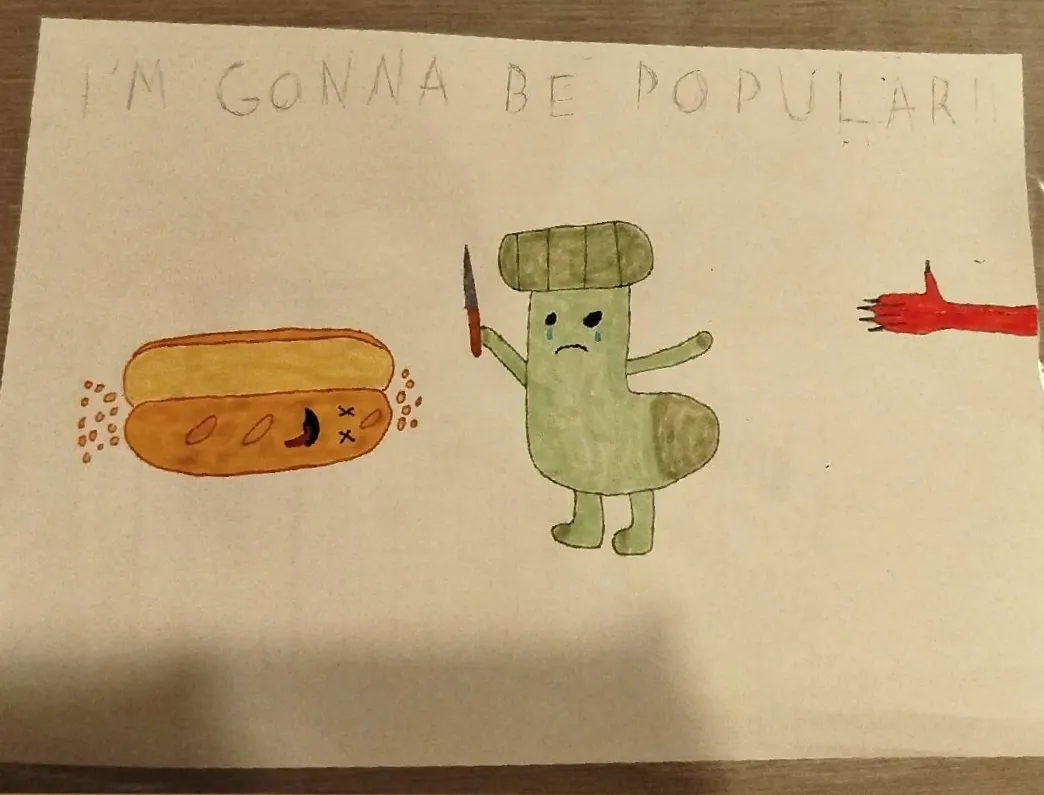 I'M GONNA BE POPULAR!!